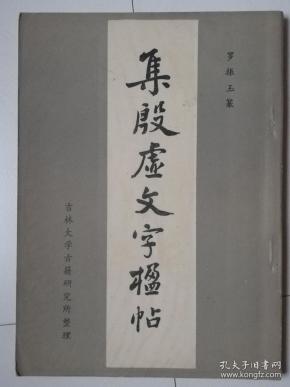 罗振玉篆
集殷虚文字楹帖
吉林大学古籍研究所整理
孔夫子旧书网